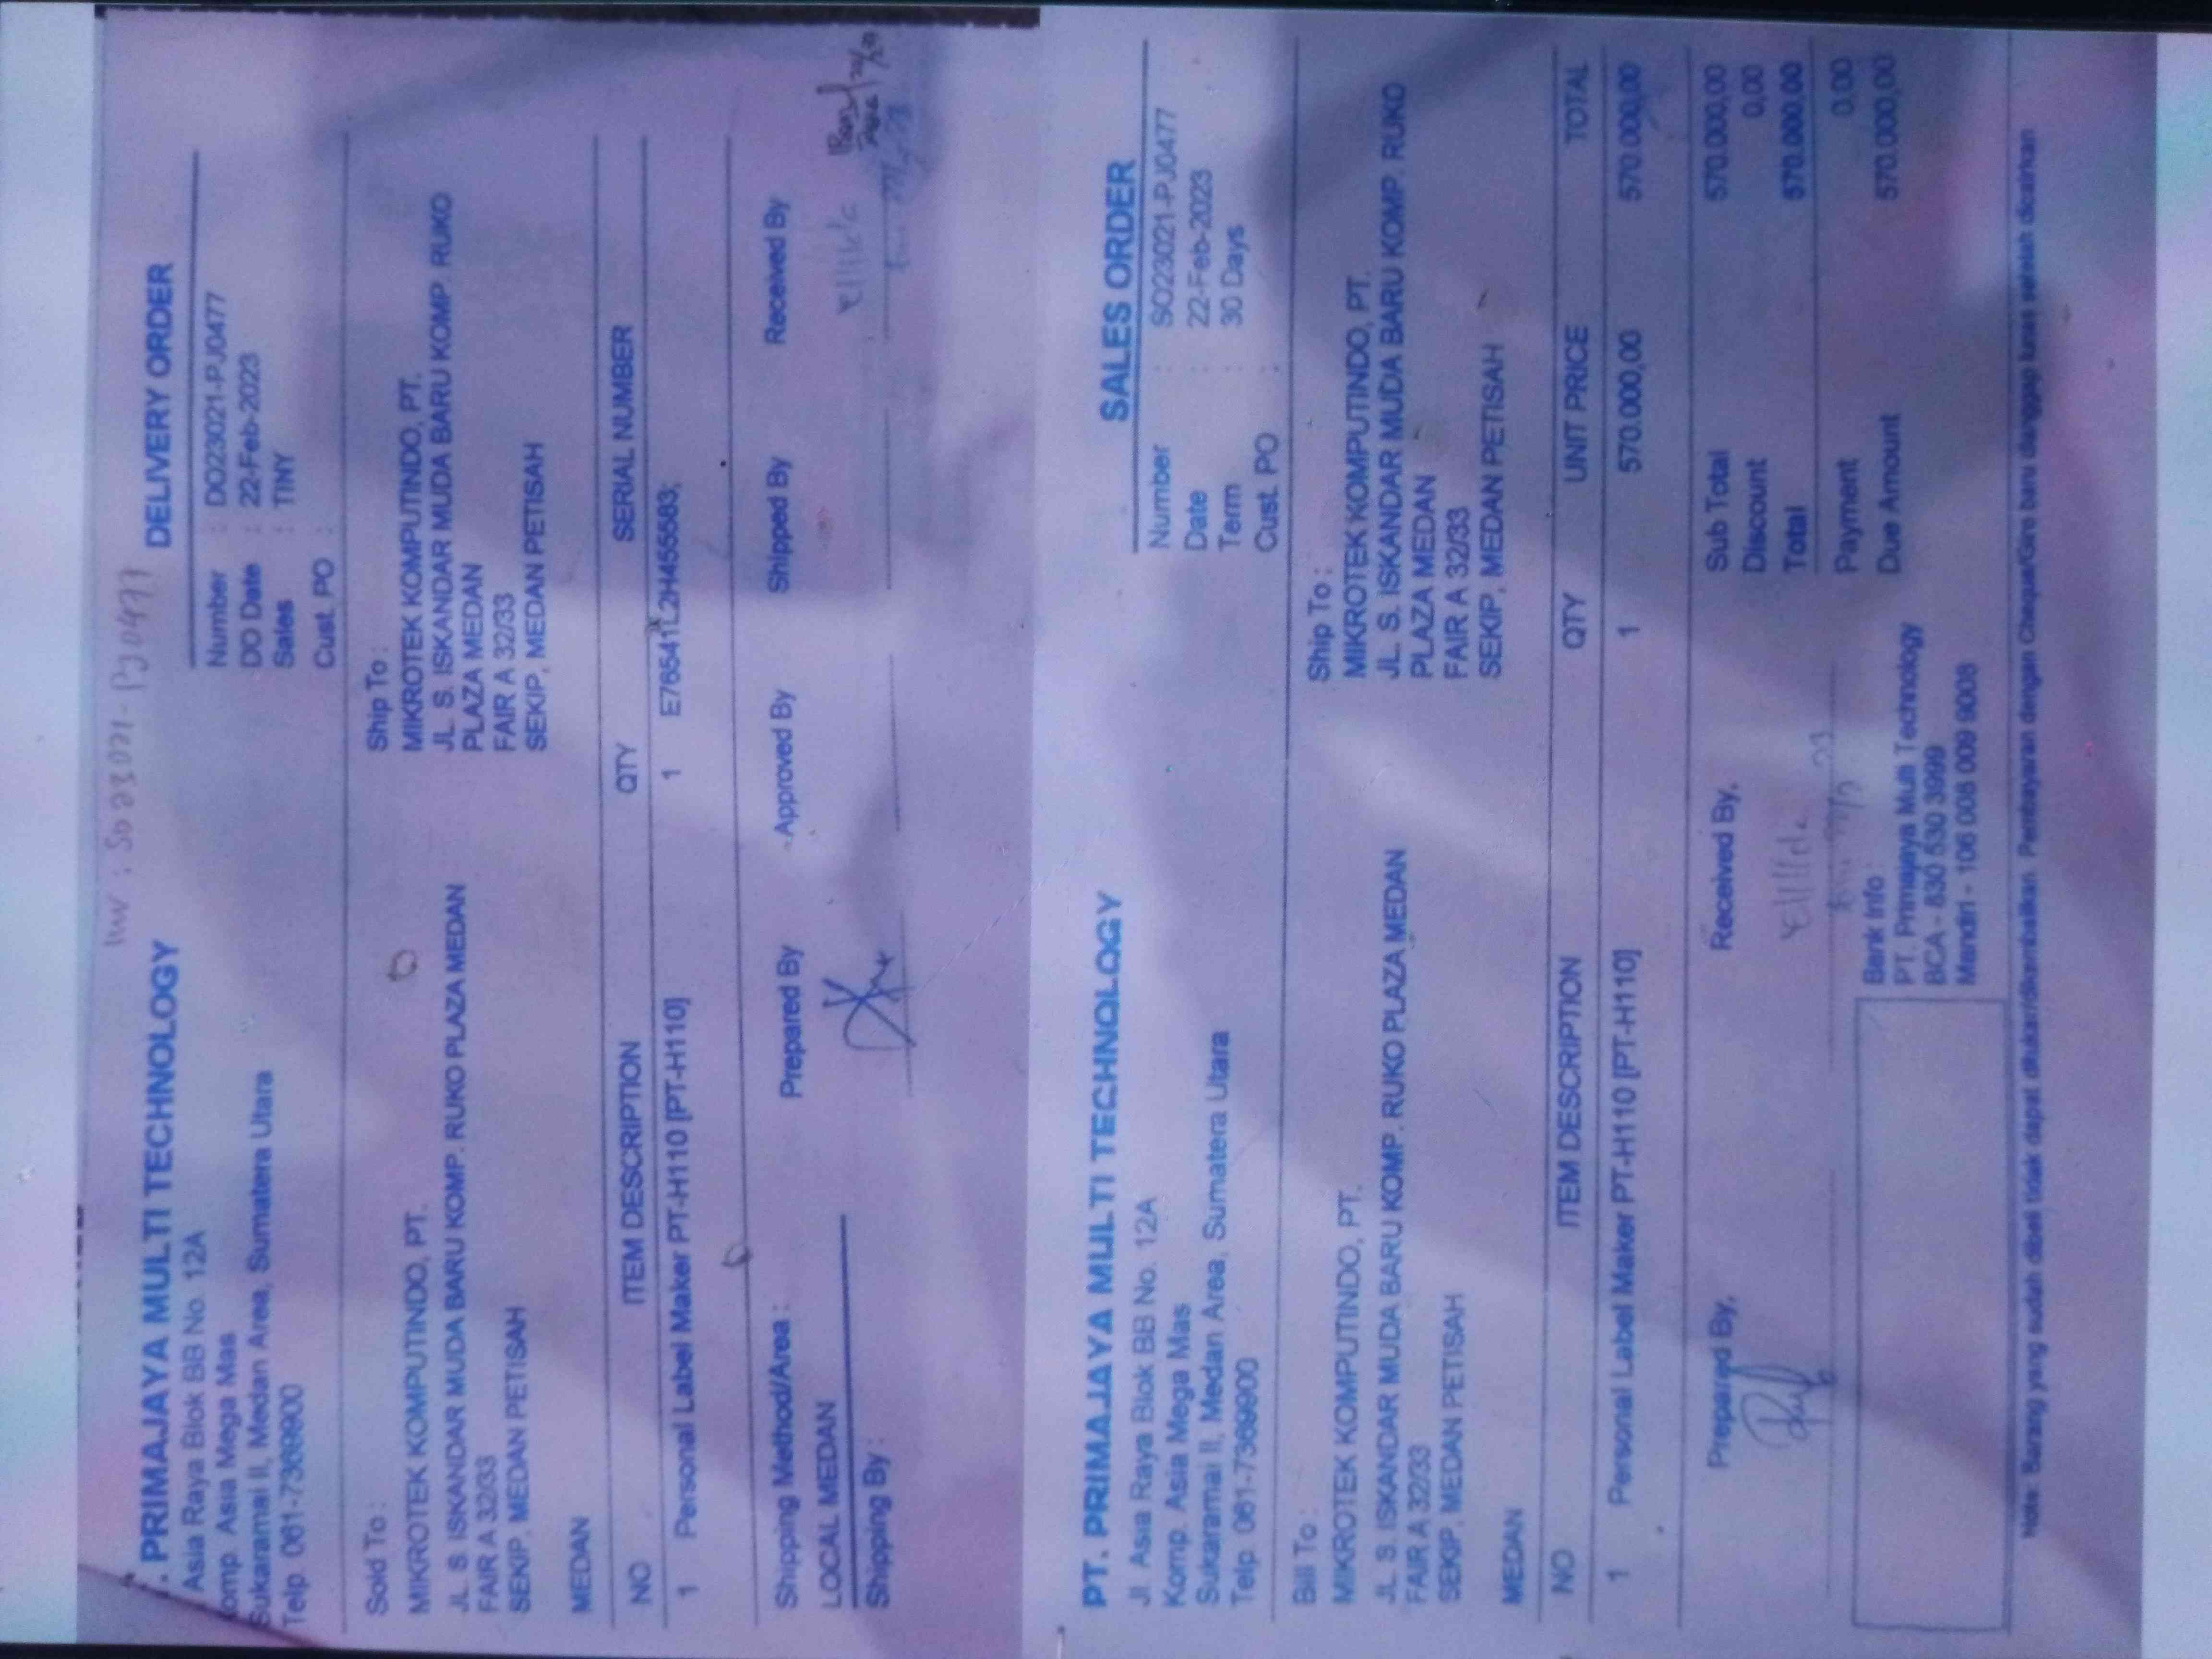 Inv : SO 23021 - PJ0477
. PRIMAJAYA MULTI TECHNOLOGY
Asia Raya Blok BB No. 12A
omp. Asia Mega Mas
Sukaramai II, Medan Area, Sumatera Utara
Telp. 061-7369900
DELIVERY ORDER
Number : DO23021-PJ0477
DO Date : 22-Feb-2023
Sales : TINY
Cust. PO :
Sold To :
MIKROTEK KOMPUTINDO, PT.
JL. S. ISKANDAR MUDA BARU KOMP. RUKO PLAZA MEDAN
FAIR A 32/33
SEKIP, MEDAN PETISAH
MEDAN
Ship To :
MIKROTEK KOMPUTINDO, PT.
JL. S. ISKANDAR MUDA BARU KOMP. RUKO
PLAZA MEDAN
FAIR A 32/33
SEKIP, MEDAN PETISAH
NO ITEM DESCRIPTION QTY SERIAL NUMBER
1 Personal Label Maker PT-H110 [PT-H110] 1 E76541L2H455583;
Shipping Method/Area :
LOCAL MEDAN
Shipping By :
Prepared By Approved By Shipped By Received By
PT. PRIMAJAYA MULTI TECHNOLOGY
Jl. Asia Raya Blok BB No. 12A
Komp. Asia Mega Mas
Sukaramai II, Medan Area, Sumatera Utara
Telp. 061-7369900
SALES ORDER
Number : SO23021-PJ0477
Date : 22-Feb-2023
Term : 30 Days
Cust. PO :
Bill To :
MIKROTEK KOMPUTINDO, PT.
JL. S. ISKANDAR MUDA BARU KOMP. RUKO PLAZA MEDAN
FAIR A 32/33
SEKIP, MEDAN PETISAH
MEDAN
Ship To :
MIKROTEK KOMPUTINDO, PT.
JL. S. ISKANDAR MUDA BARU KOMP. RUKO
PLAZA MEDAN
FAIR A 32/33
SEKIP, MEDAN PETISAH
NO ITEM DESCRIPTION QTY UNIT PRICE TOTAL
1 Personal Label Maker PT-H110 [PT-H110] 1 570.000,00 570.000,00
Prepared By, Received By,
Sub Total 570.000,00
Discount 0,00
Total 570.000,00
Payment 0,00
Due Amount 570.000,00
Bank Info :
PT. Primajaya Multi Technology
BCA - 830 530 3999
Mandiri - 106 008 009 9008
Note: Barang yang sudah dibeli tidak dapat ditukar/dikembalikan. Pembayaran dengan Cheque/Giro baru dianggap lunas setelah dicairkan